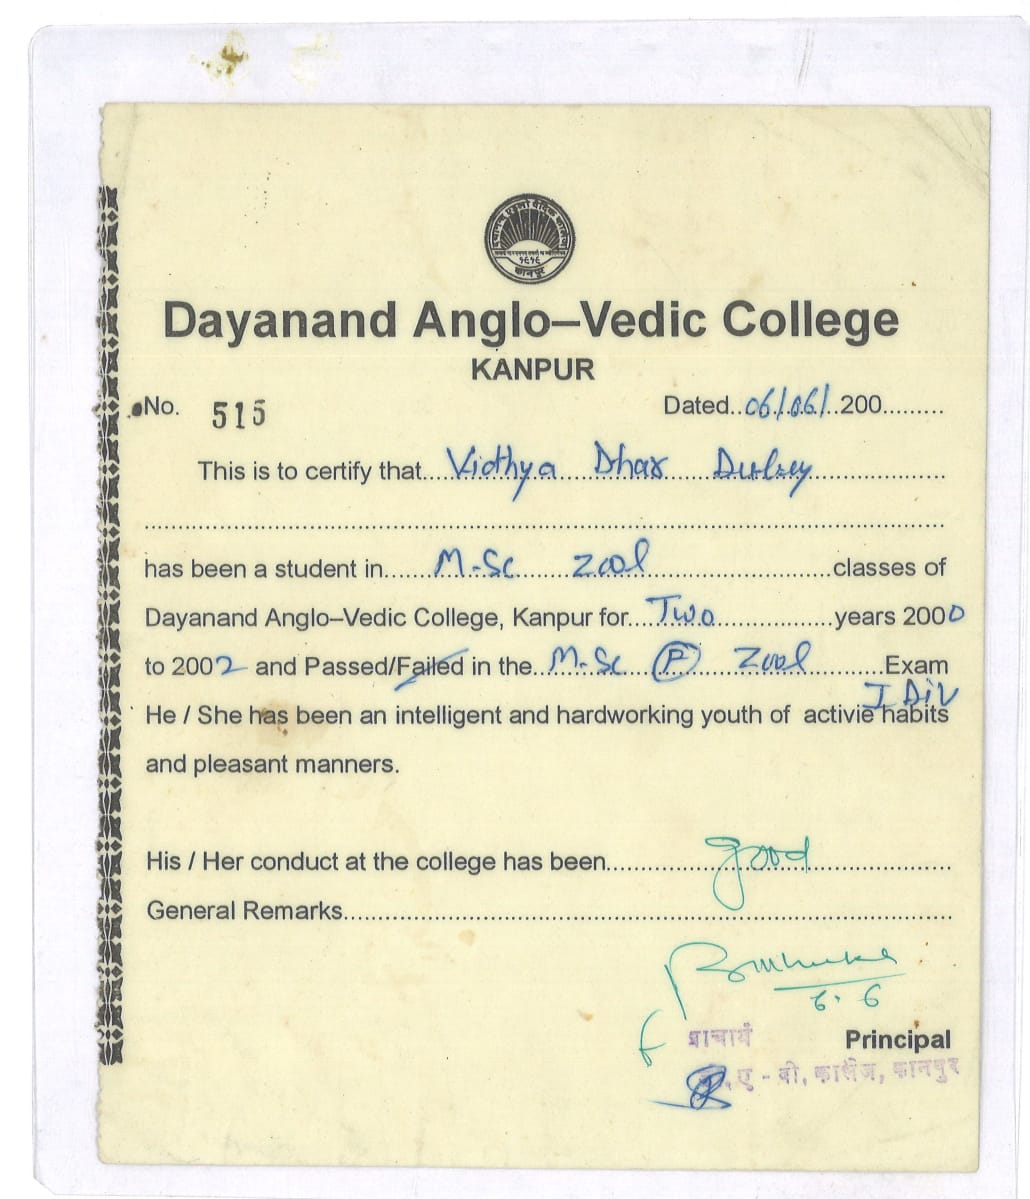 १९१९
कानपुर
Dayanand Anglo–Vedic College
KANPUR
No. 515 Dated..06/06/..200.........
This is to certify that....Vidhya Dhar Dubey....................
has been a student in.......M.Sc Zool..............................classes of
Dayanand Anglo–Vedic College, Kanpur for....Two.................years 2000
to 2002 and Passed/Failed in the..M.Sc (F) Zool............Exam
I Div
He / She has been an intelligent and hardworking youth of activie habits
and pleasant manners.
His / Her conduct at the college has been...............good......................
General Remarks.........................................................................................
6.6
प्राचार्य Principal
ए - वी, कालेज, कानपुर